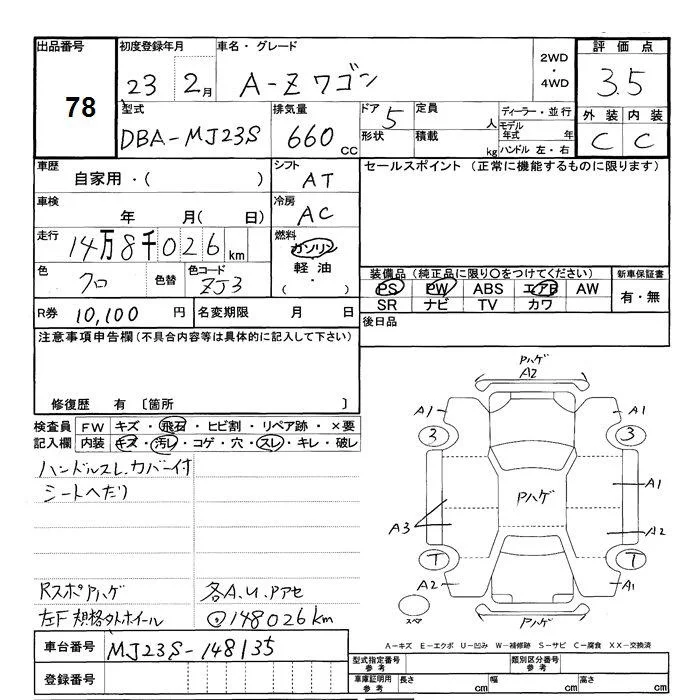 出品番号 初度登録年月 車名・グレード 評価点
78 23 2月 A-Zワゴン 2WD ・ 4WD 3.5
型式 排気量 ドア 5 定員 人 ディーラー・並行 外装 内装
DBA-MJ23S 660 cc 形状 積載 kg モデル年式 年 ハンドル 左・右 C C
車歴 シフト セールスポイント (正常に機能するものに限ります)
自家用・( ) AT
車検 冷房
年 月( 日) AC
走行 燃料
14万8千026km ガソリン
色 色替 色コード 軽油 装備品(純正品に限り○をつけてください) 新車保証書
クロ ZJ3 (・) PS PW ABS エアB AW 有・無
SR ナビ TV カワ
R券 10,100円 名変期限 月 日 後日品
注意事項申告欄(不具合内容等は具体的に記入して下さい)
修復歴 有 〔箇所 〕
検査員 FW キズ・飛石・ヒビ割・リペア跡・×要
記入欄 内装 キズ・汚レ・コゲ・穴・スレ・キレ・破レ
ハンドルスレ.カバー付
シートへたり
RスポPハゲ 各A.U.Pアセ
左F規格外ホイール ◎148026km
Pハゲ
A2
A1 A1
3 3
Pハゲ A1
A3 A2
T T
A2 A1
スペア Pハゲ
A-キズ E-エクボ U-凹み W-補修跡 S-サビ C-腐食 XX-交換済
車台番号 MJ23S-148135 型式指定番号 参考 類別区分番号 参考
登録番号 車庫証明用 参考 長さ cm 幅 cm 高さ cm